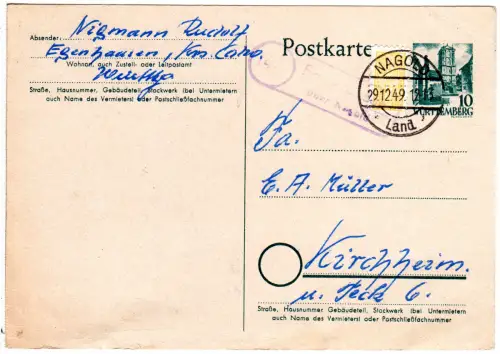 Absender: Nißmann Rudolf
Egenhausen, Krs. Calw.
Wohnort, auch Zustell- oder Leitpostamt
Straße, Hausnummer, Gebäudeteil, Stockwerk (bei Untermietern
auch Name des Vermieters) oder Postschließfachnummer
Postkarte
über Nagold
NAGOLD
29.12.49
Land
10
WÜRTTEMBERG
Fa.
E. A. Müller
Kirchheim.
u. Teck 6.
Straße, Hausnummer, Gebäudeteil, Stockwerk (bei Untermietern
auch Name des Vermieters) oder Postschließfachnummer